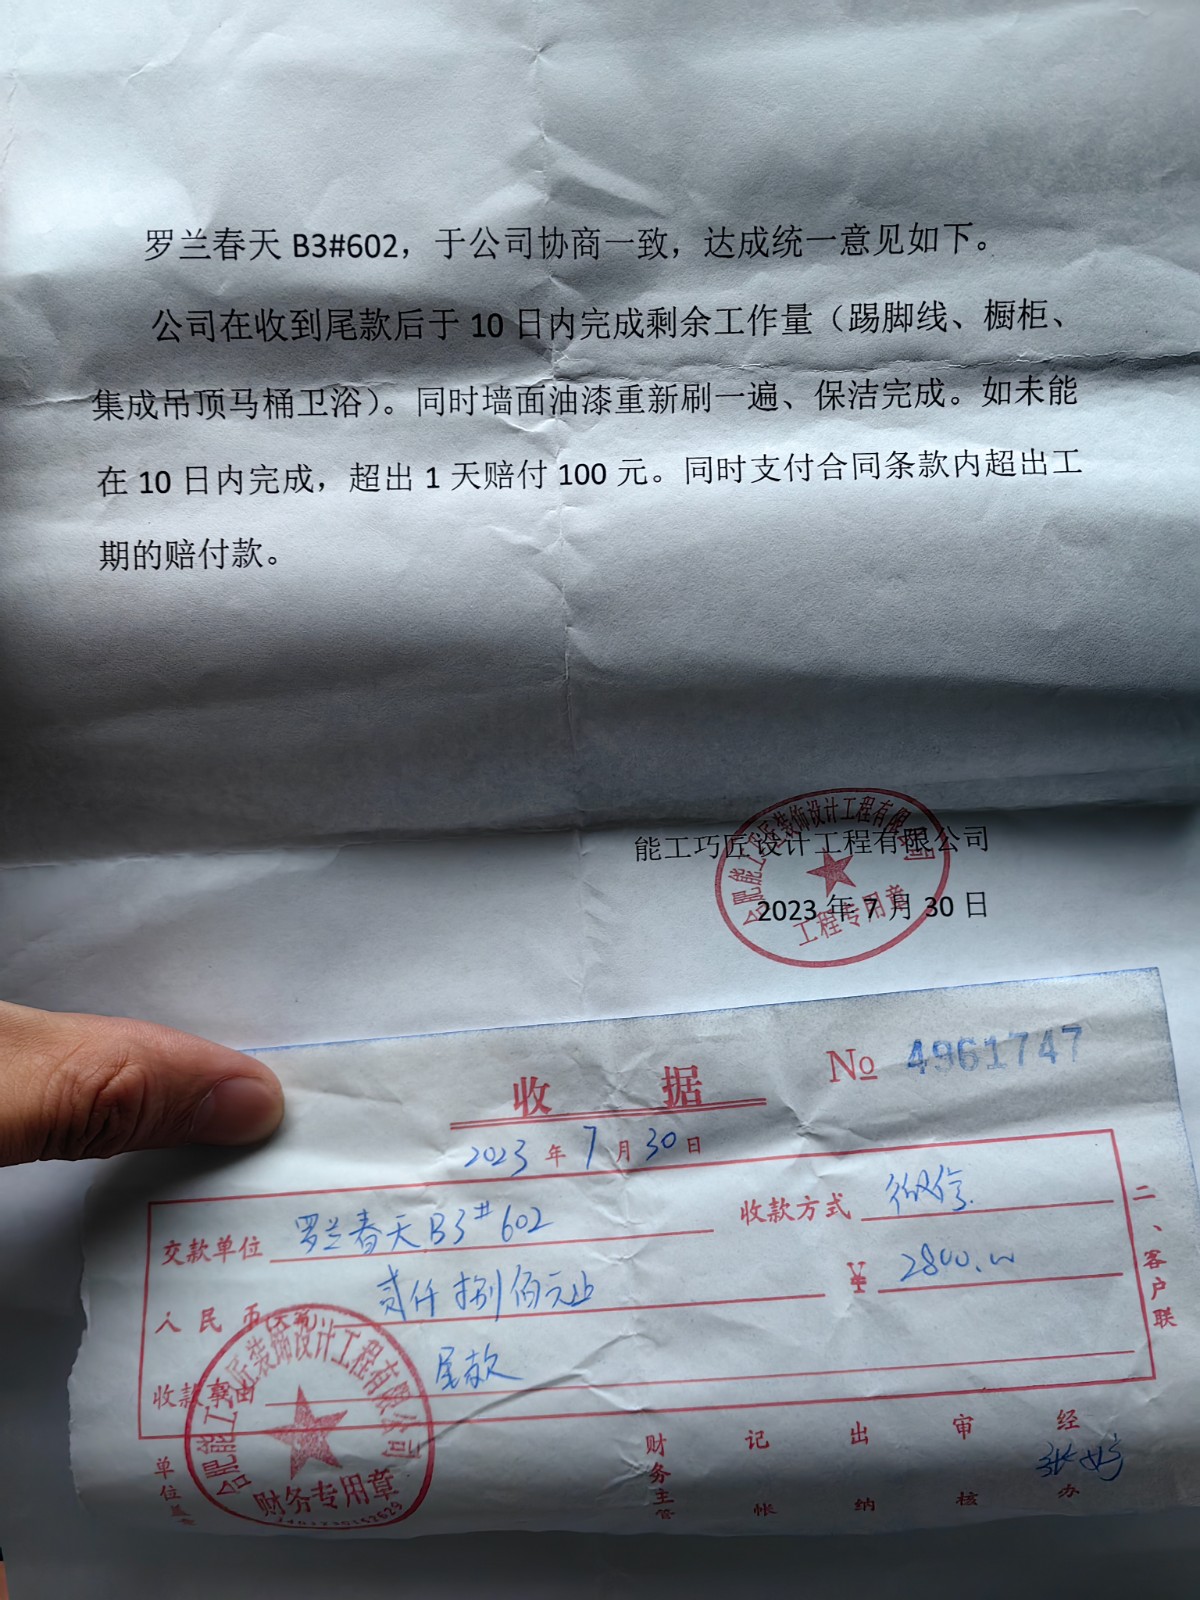 罗兰春天 B3#602，于公司协商一致，达成统一意见如下。
公司在收到尾款后于 10 日内完成剩余工作量（踢脚线、橱柜、
集成吊顶马桶卫浴）。同时墙面油漆重新刷一遍、保洁完成。如未能
在 10 日内完成，超出 1 天赔付 100 元。同时支付合同条款内超出工
期的赔付款。
合肥能工巧匠装饰设计工程有限公司
能工巧匠设计工程有限公司
2023 年 7 月 30 日
工程专用章
收 据 No 4961747
2023 年 7 月 30 日
交款单位 罗兰春天B3#602 收款方式 微信
人民币(大写) 贰仟捌佰元止 ¥ 2800.00
收款事由 尾款
二、客户联
合肥能工巧匠装饰设计工程有限公司
财务专用章
单位盖章 财务主管 记帐 出纳 审核 经办